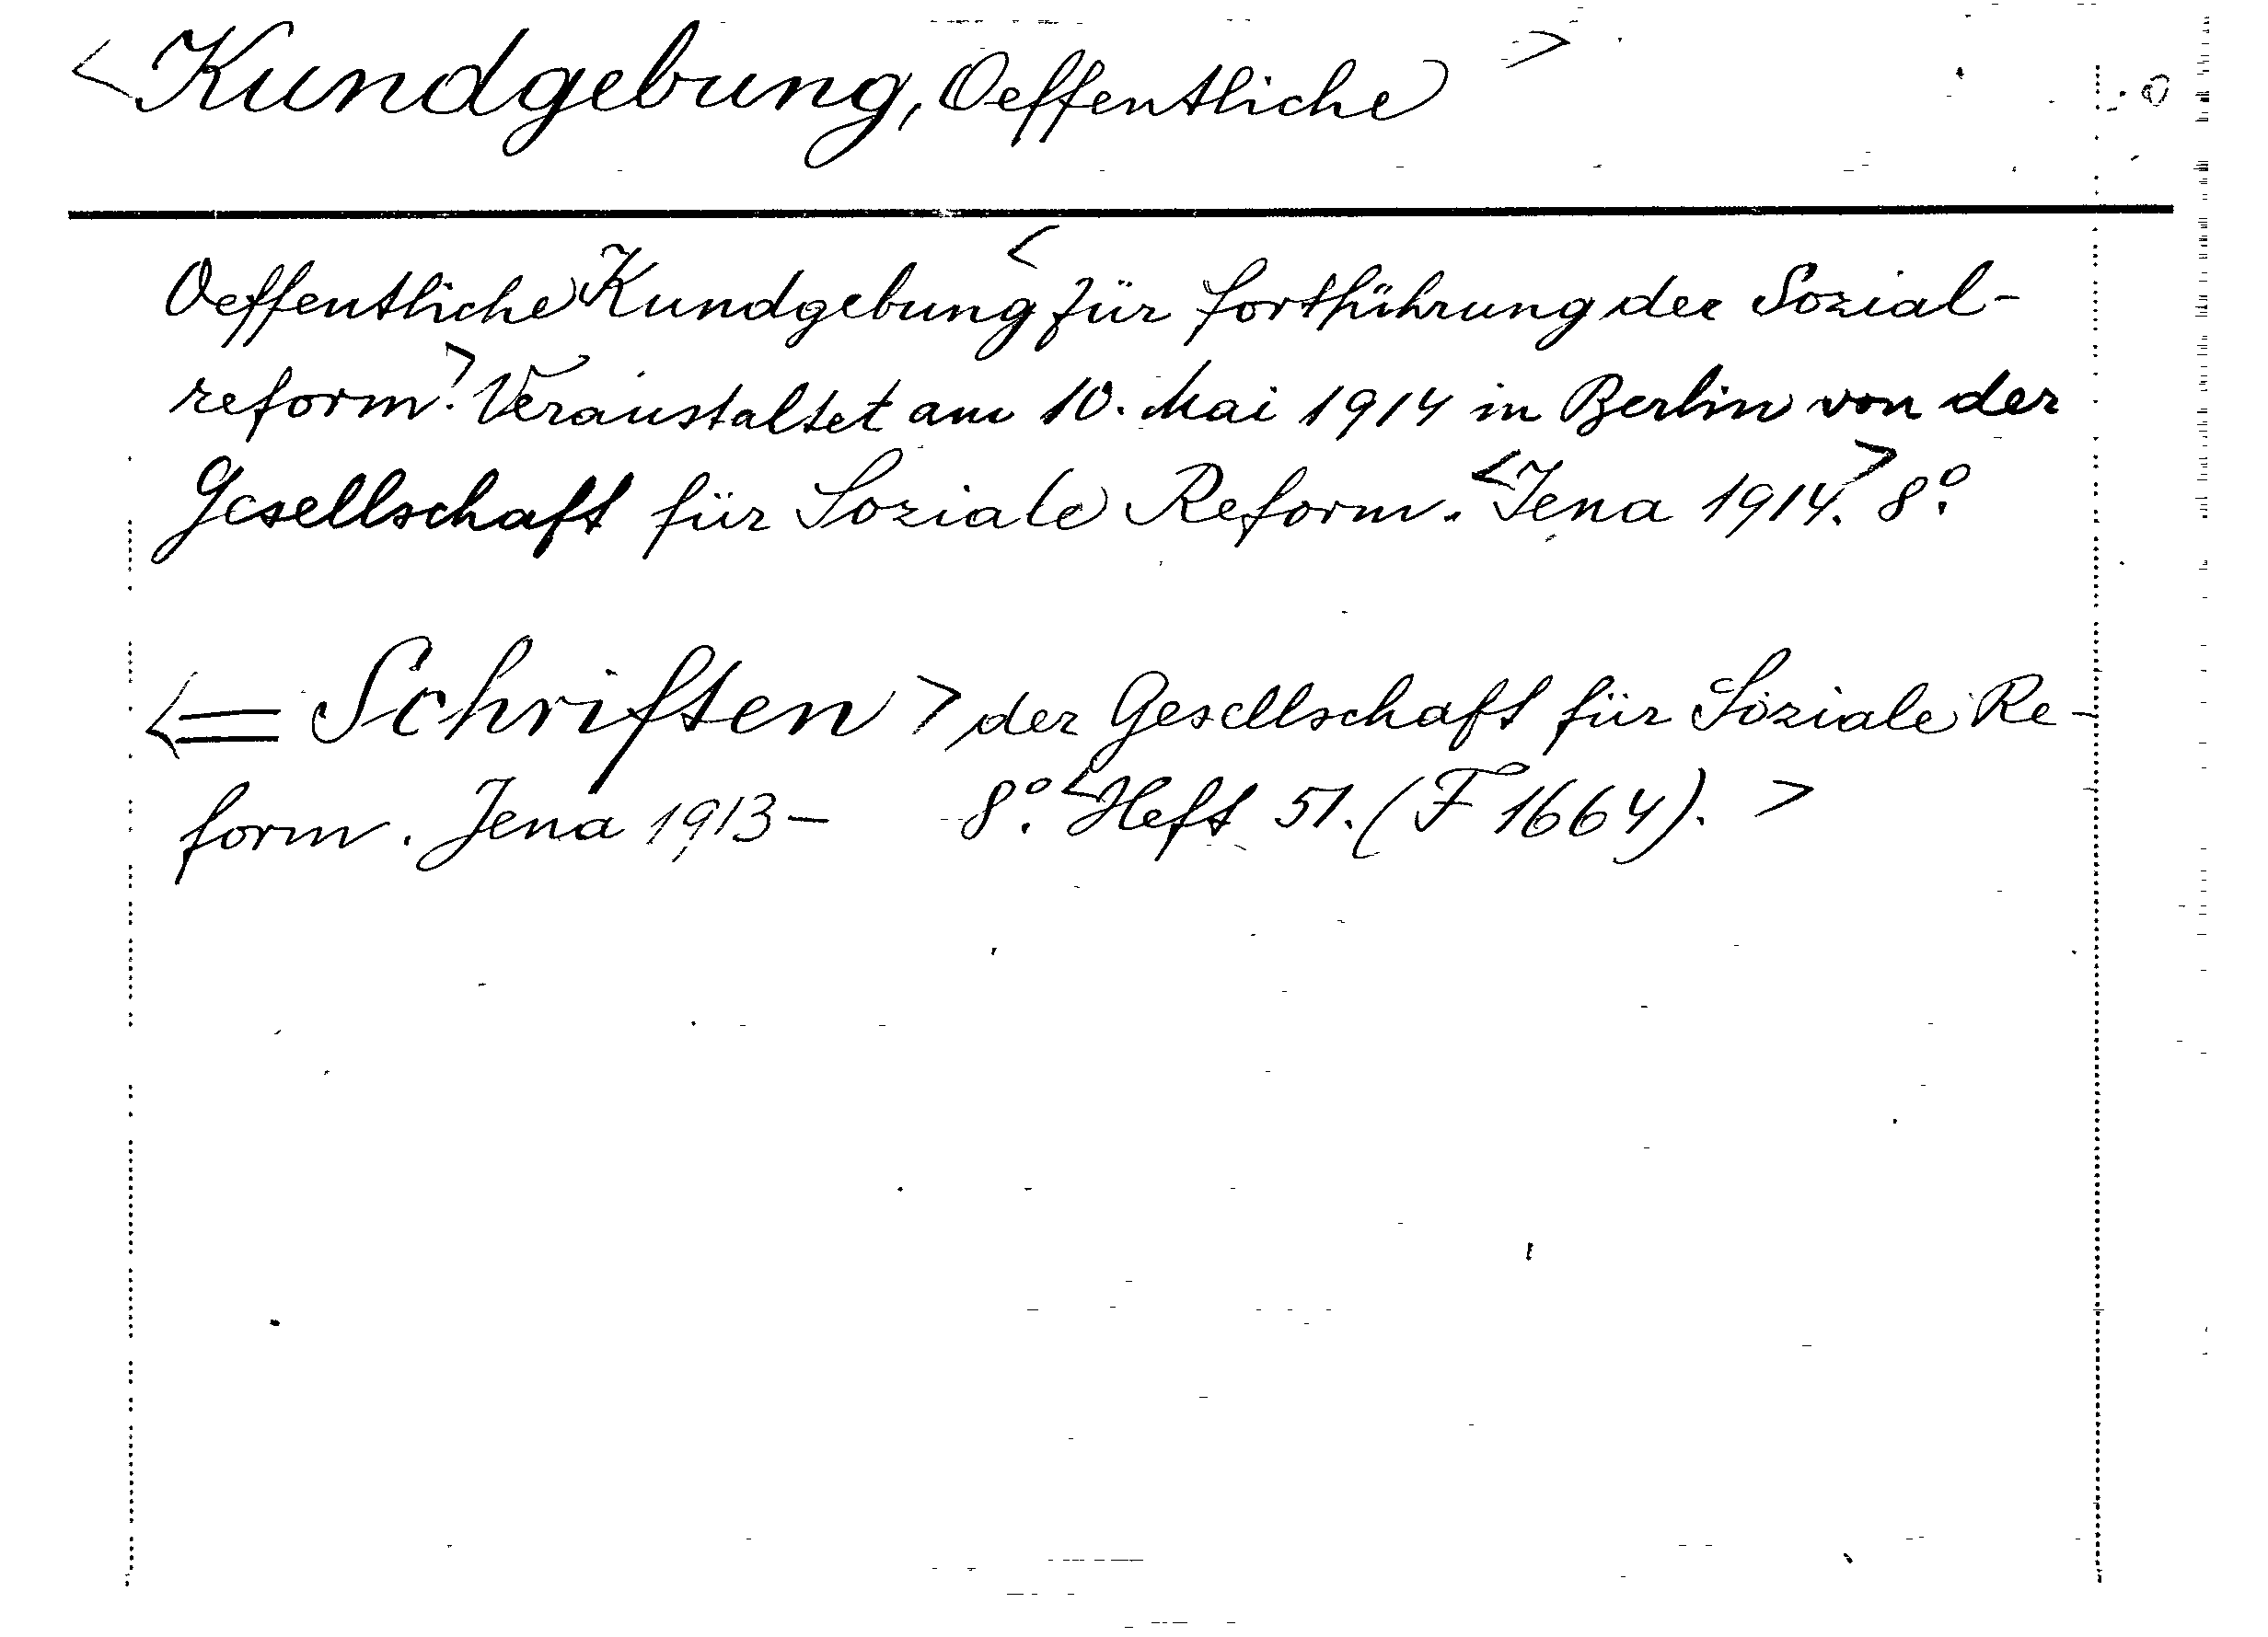 <Kundgebung, Oeffentliche>
Oeffentliche Kundgebung <für Fortführung der Sozial-
reform.> Veranstaltet am 10. Mai 1914 in Berlin von der
Gesellschaft für Soziale Reform. <Jena 1914.> 8°.
<= Schriften> der Gesellschaft für Soziale Re-
form. Jena 1913- 8°. <Heft 51. (F 1664). >